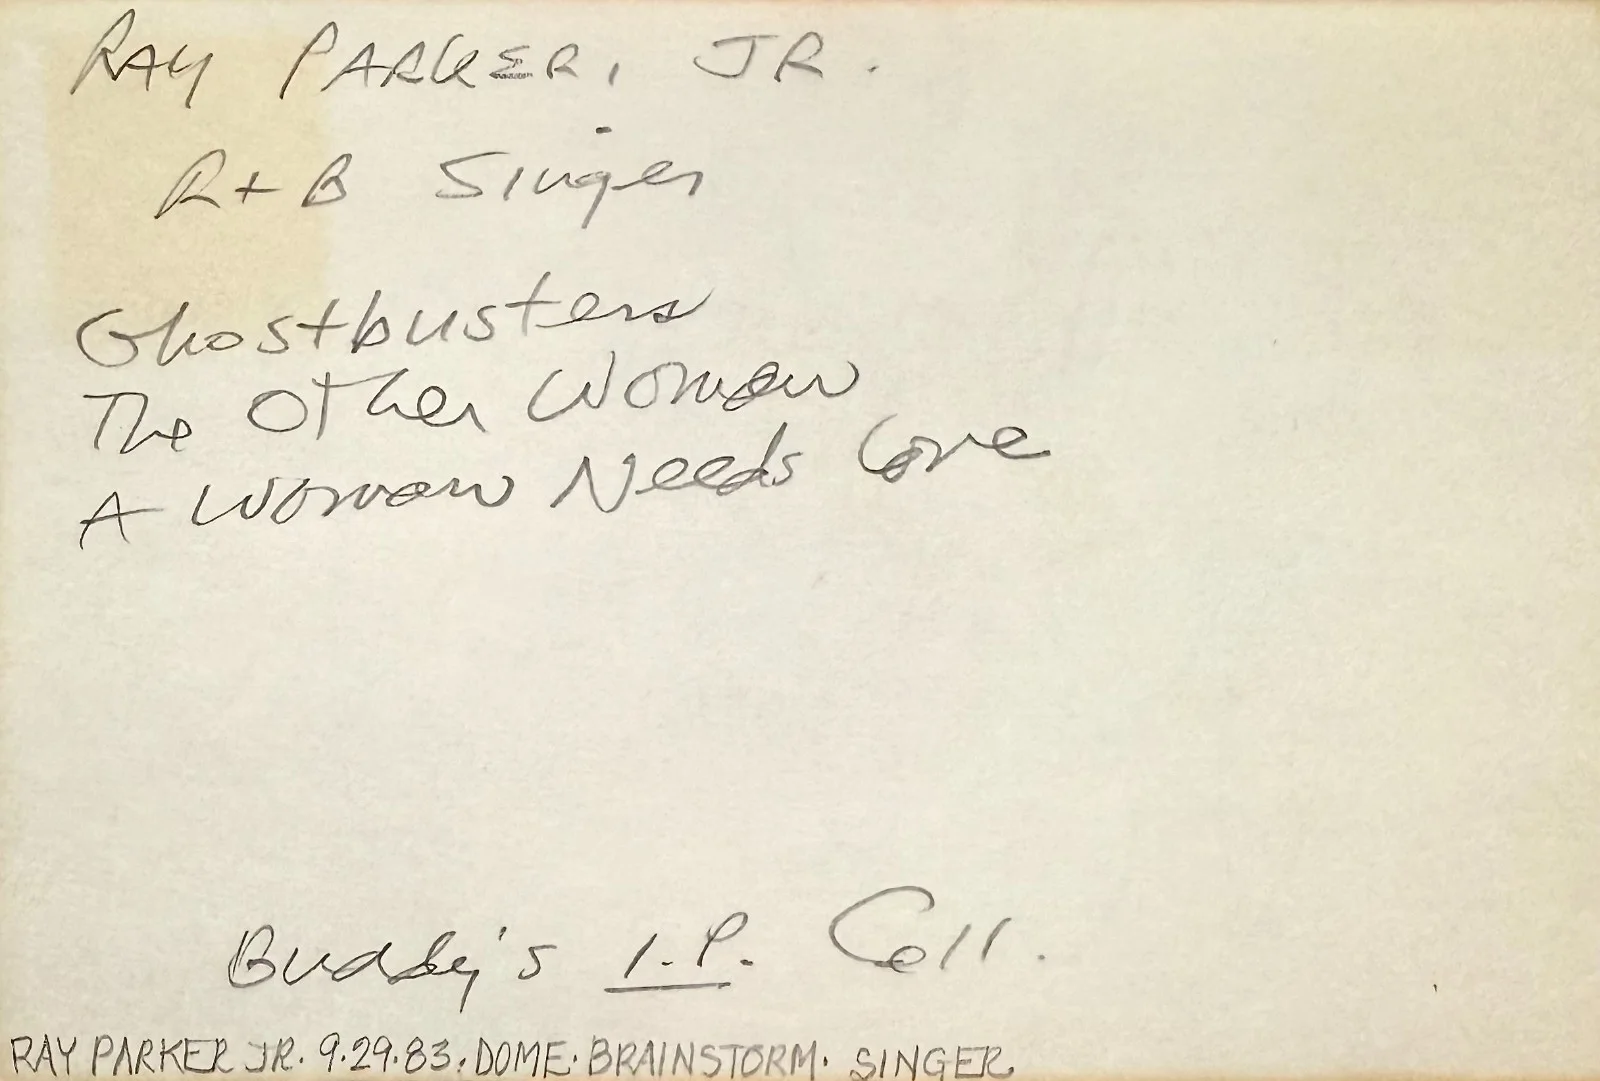 RAY PARKER, JR.
R+B Singer
Ghostbusters
The Other Woman
A Woman Needs Love
Buddy's I.P. Coll.
RAY PARKER JR. 9.29.83. DOME. BRAINSTORM. SINGER